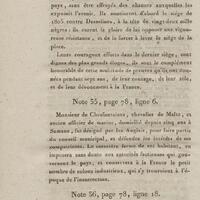 pays, sans être effrayés des chances auxquelles les
exposait l'avenir. Ils soutinrent d'abord le siége de
1805 contre Dessalines, à la tête de vingt-deux mille
nègres ; ils eurent la gloire de lui opposer une vigou-
reuse résistance, et de le forcer à lever le siége de la
place.
Leurs courageux efforts dans le dernier siége, sont
dignes des plus grands éloges ; ils sont le complément
honorable de cette multitude de preuves qu'ils ont
données pendant sept ans, de leur courage, de leur zèle,
et de leur dévouement à la France.
Note 55, page 78, ligne 6.
Monsieur de Chrestantanne, chevalier de Malte, et
ancien officier de marine, domicilié depuis cinq ans à
Samana, fut désigné par les Anglais, pour faire partie
du conseil municipal, et défendre les intérêts de ses
compatriotes. Le caractère ferme de cet habitant, en
imposèrent sans doute aux autorités haineuses qui gou-
vernaient le pays, et conservera à la France le petit
nombre de colons industrieux, qui s'y trouvaient à l'é-
poque de l'insurrection.
Note 56, page 78, ligne 18.